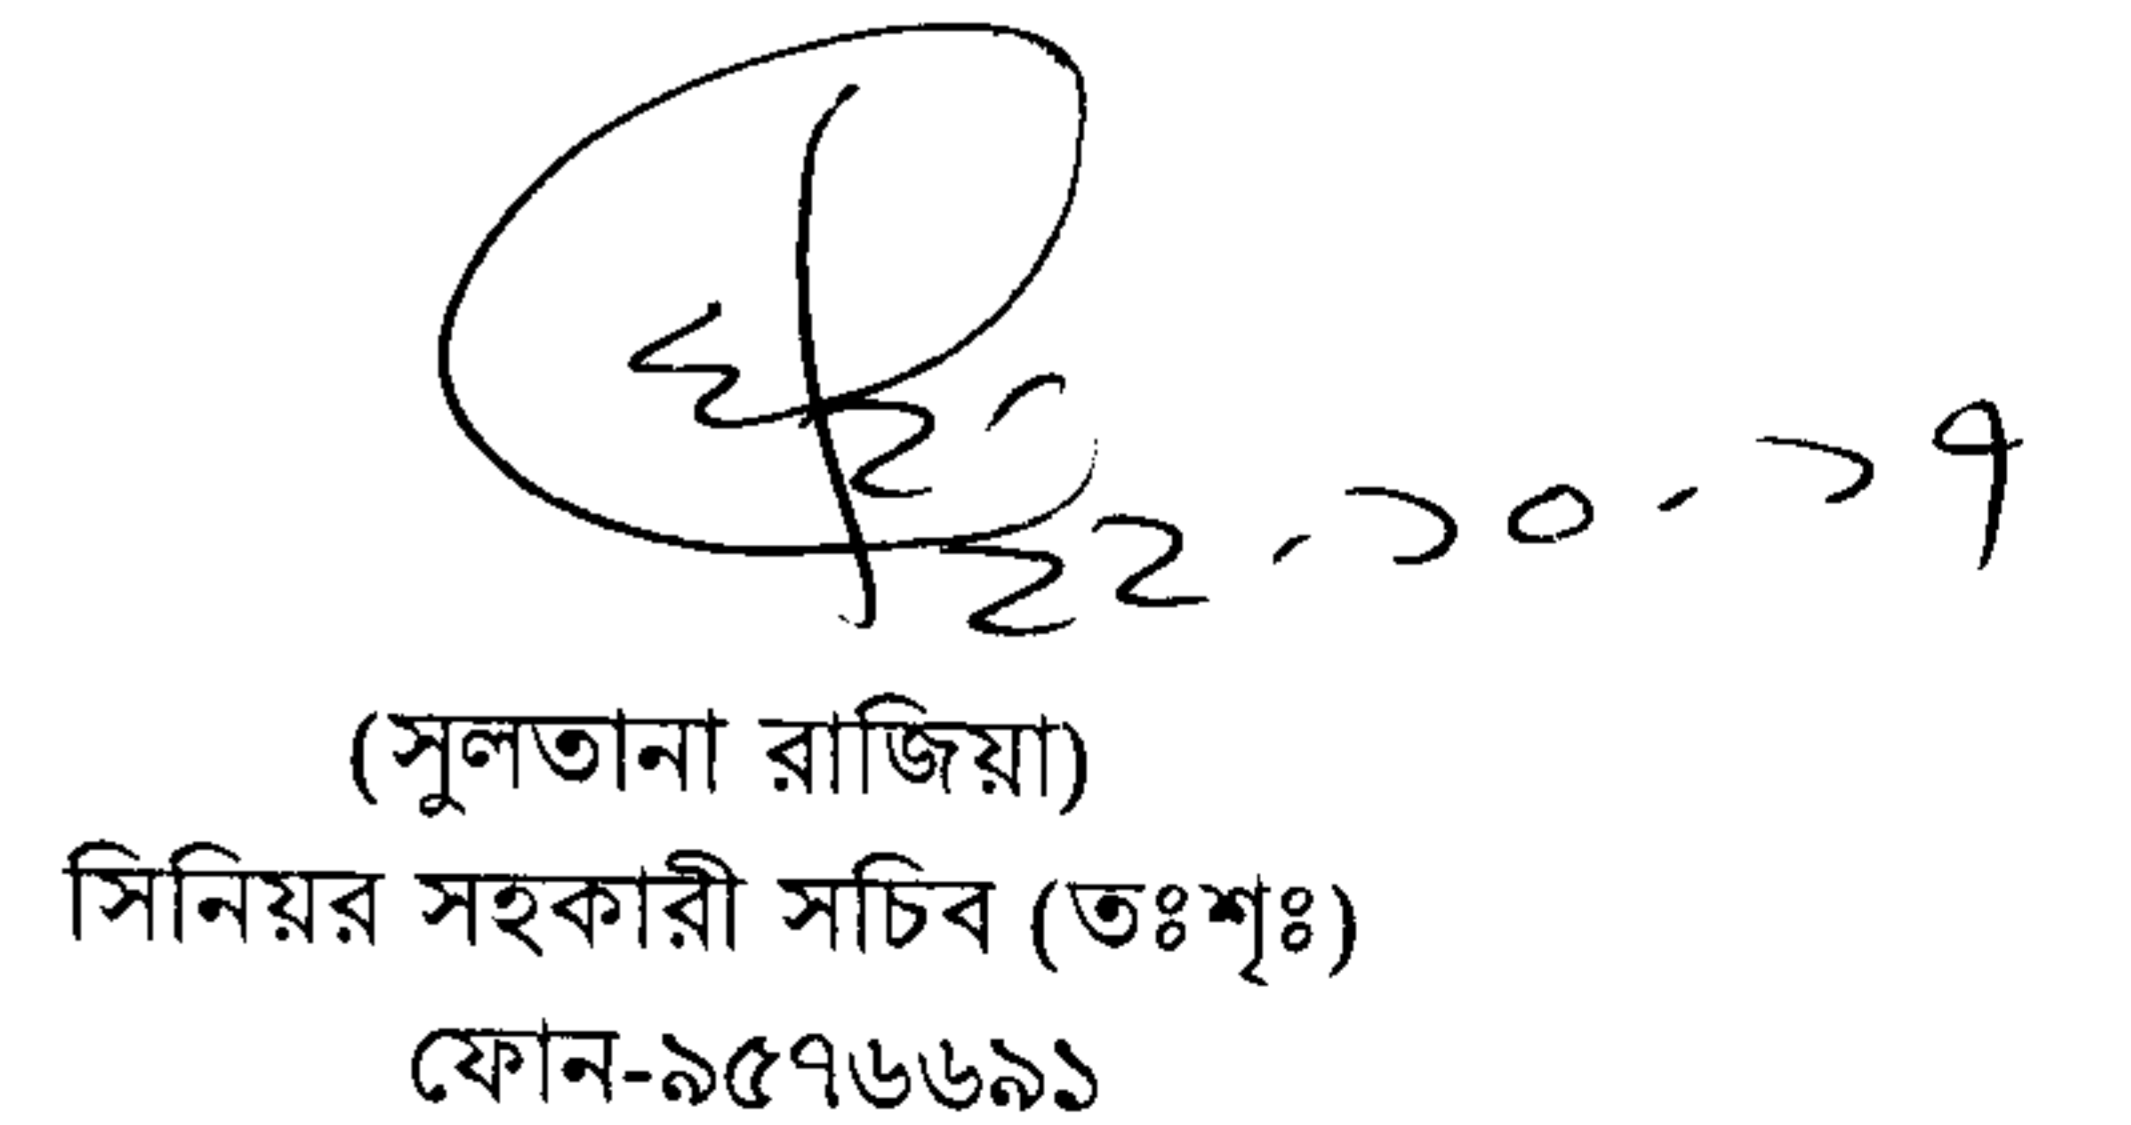 ২২.১০.১৭
(সুলতানা রাজিয়া)
সিনিয়র সহকারী সচিব (তঃশৃঃ)
ফোন-৯৫৭৬৬৯১